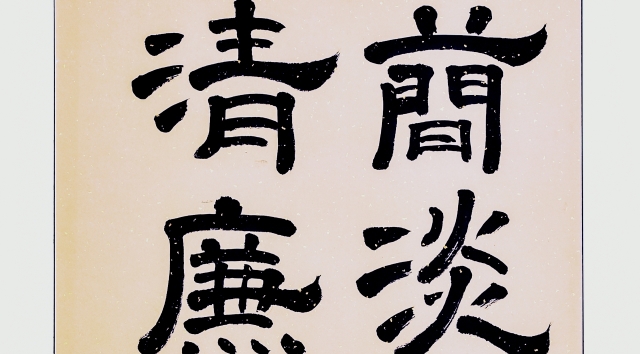 簡淡
清廉